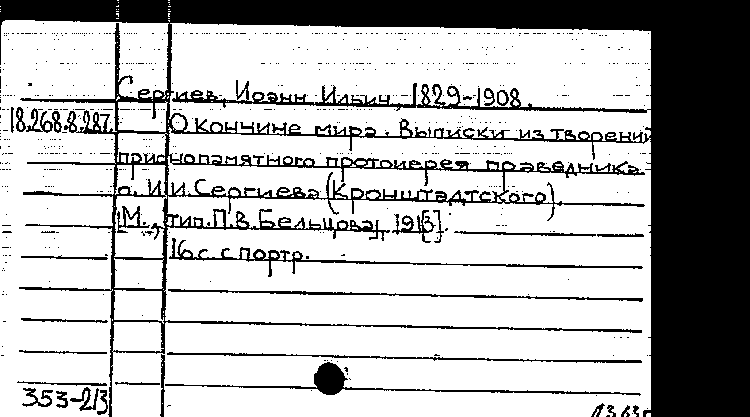 Сергиев, Иоанн Ильич, 1829-1908.
18.268.8.287. О кончине мира. Выписки из творений
приснопамятного протоиерея праведника
о. И.И. Сергиева (Кронштадтского).
[М., тип. П.В. Бельцова], 191[3].
16 с. с портр.
353-213